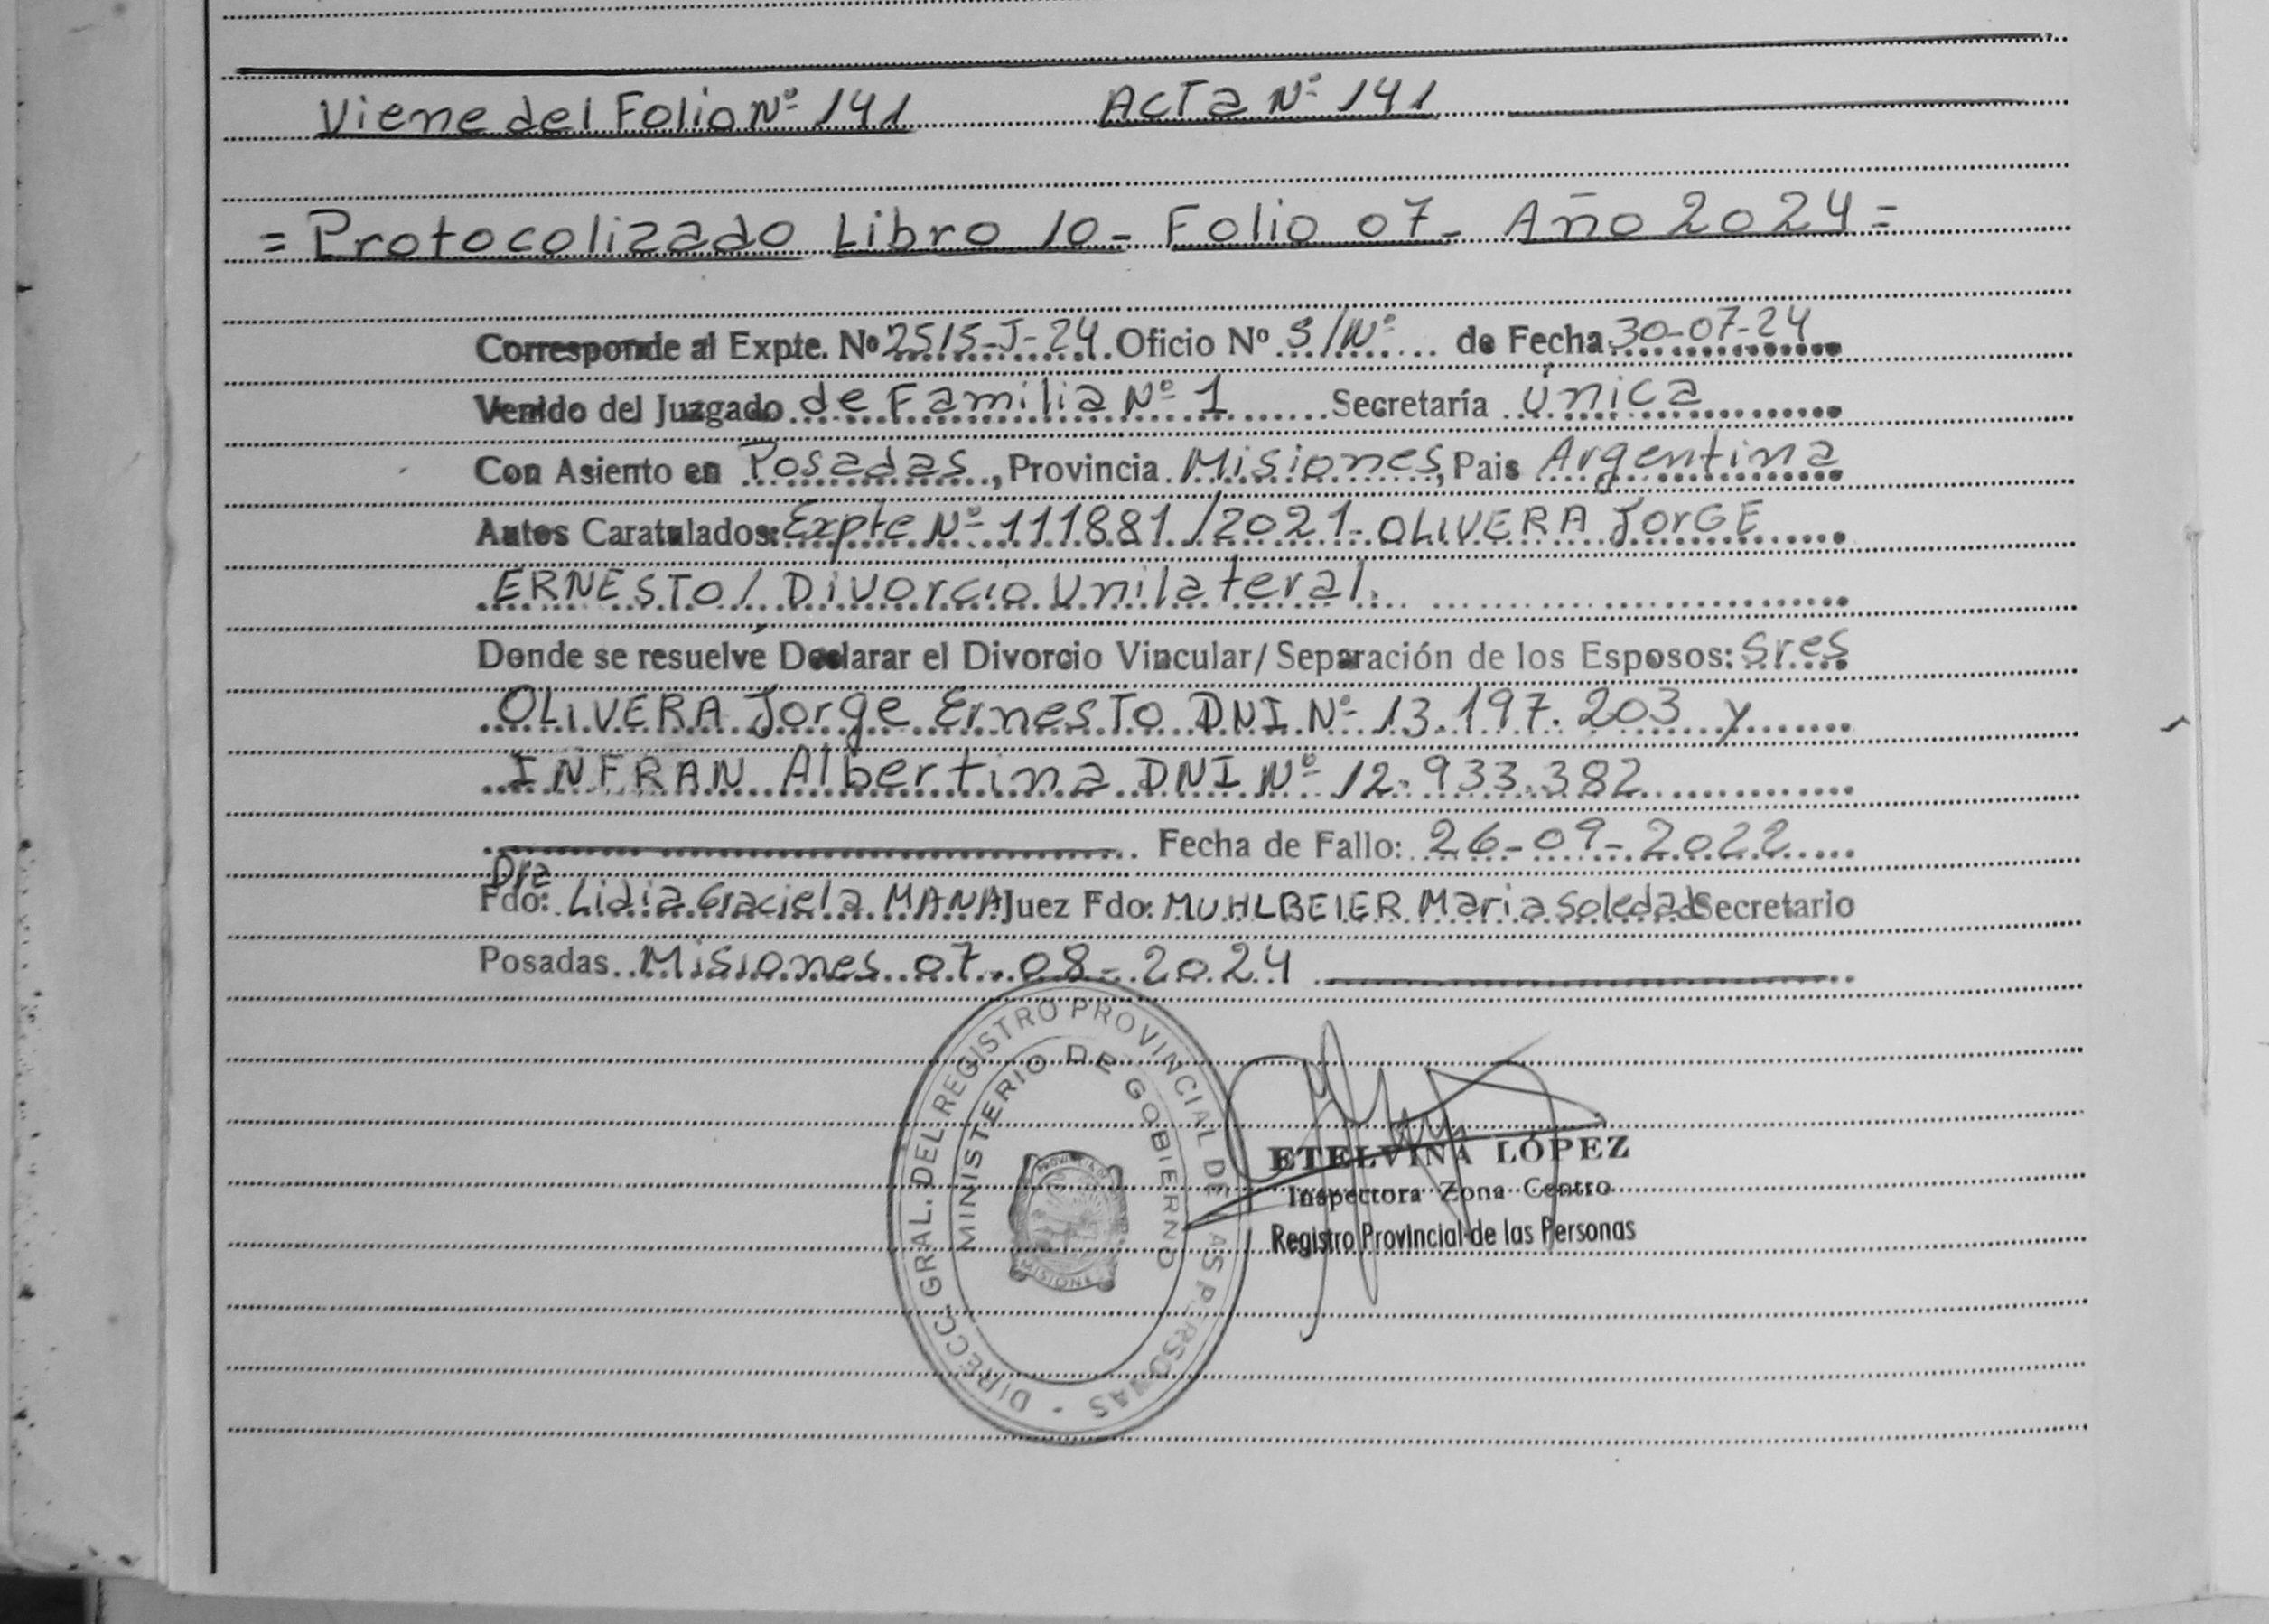 Viene del Folio Nº 141 Acta Nº 141
= Protocolizado Libro 10 - Folio 07 - Año 2024 =
Corresponde al Expte. Nº 2515-J-24. Oficio Nº S/Nº de Fecha 30-07-24
Venido del Juzgado de Familia Nº 1 Secretaría Única
Con Asiento en Posadas, Provincia Misiones, Pais Argentina
Autos Caratulados: Expte Nº 111881/2021- OLIVERA JorGE
ERNESTO / Divorcio Unilateral.
Donde se resuelve Declarar el Divorcio Vincular/ Separación de los Esposos: Sres
OLIVERA Jorge Ernesto DNI Nº 13.197.203 y
INFRAN Albertina DNI Nº 12.933.382
Fecha de Fallo: 26-09-2022
Dra
Fdo: Lidia Graciela MANA Juez Fdo: MUHLBEIER Maria Soledad Secretario
Posadas Misiones 07-08-2024
DIRECC. GRAL. DEL REGISTRO PROVINCIAL DE LAS PERSONAS
MINISTERIO DE GOBIERNO
MISIONES
ETELVINA LÓPEZ
Inspectora Zona Centro
Registro Provincial de las Personas